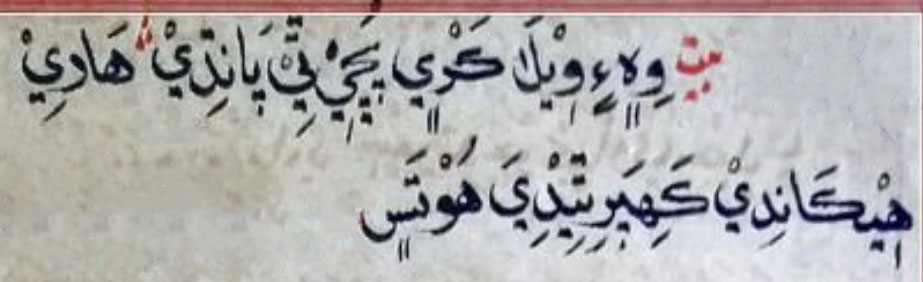 بيت وِهٍ ءٍ وِيْلَا كَرْيٍ پَڇَيْ تِيْ پَانِڌِيْ هَادِيْ
هِيْكَانِدِيْ كَهِبَرِ تِيْدِيَ هُوْتَسٍ